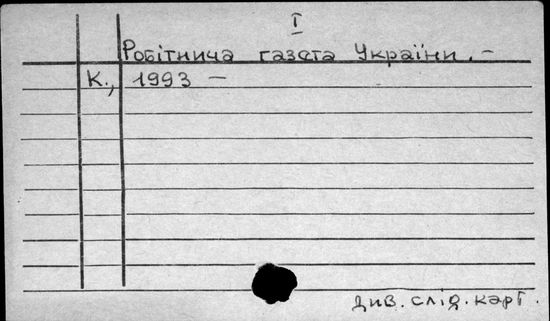 I
Робітнича газета України. –
К., 1993 –
див. слід. карт.